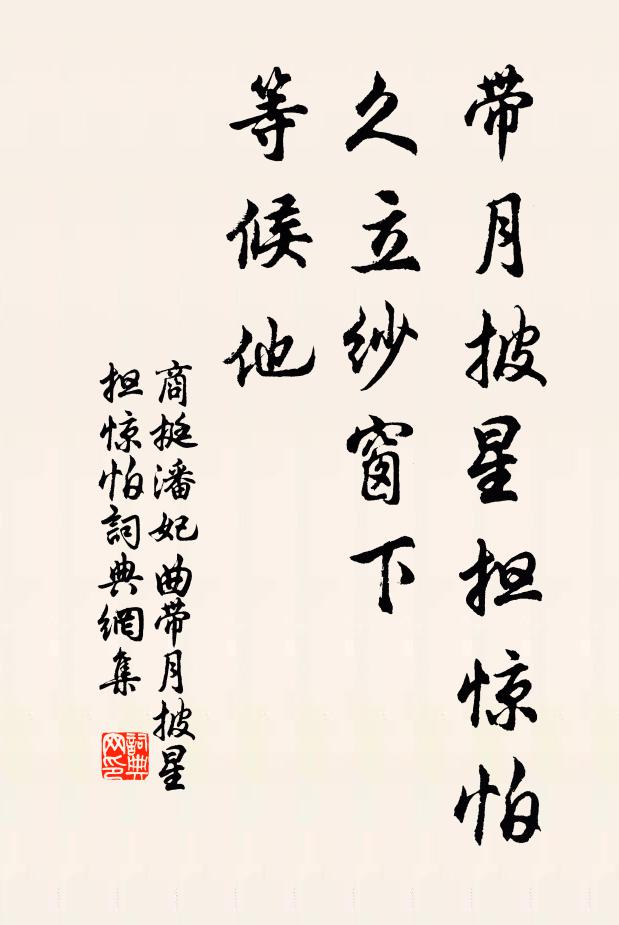 带月披星担惊怕
久立纱窗下
等候他
商挺潘妃曲带月披星
担惊怕詞典網集
詞典网印